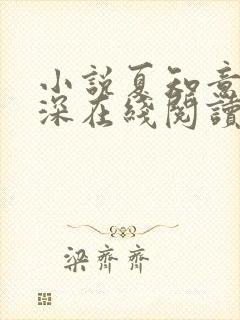 小説夏知意
深在綫閱讀
梁齊齊